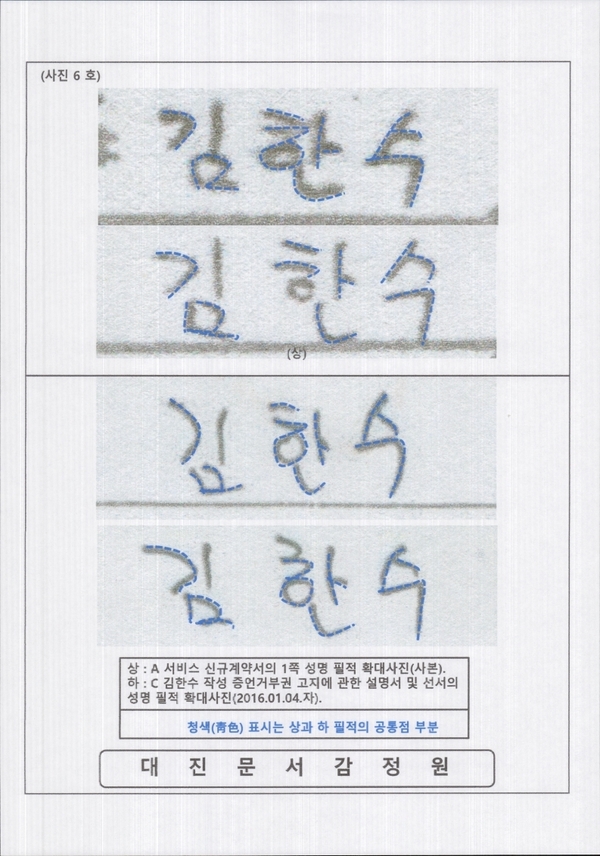 (사진 6 호)
김한수
김한수
(상)
김한수
김한수
상 : A 서비스 신규계약서의 1쪽 성명 필적 확대사진(사본).
하 : C 김한수 작성 증언거부권 고지에 관한 설명서 및 선서의
성명 필적 확대사진(2016.01.04.자).
청색(靑色) 표시는 상과 하 필적의 공통점 부분
대 진 문 서 감 정 원